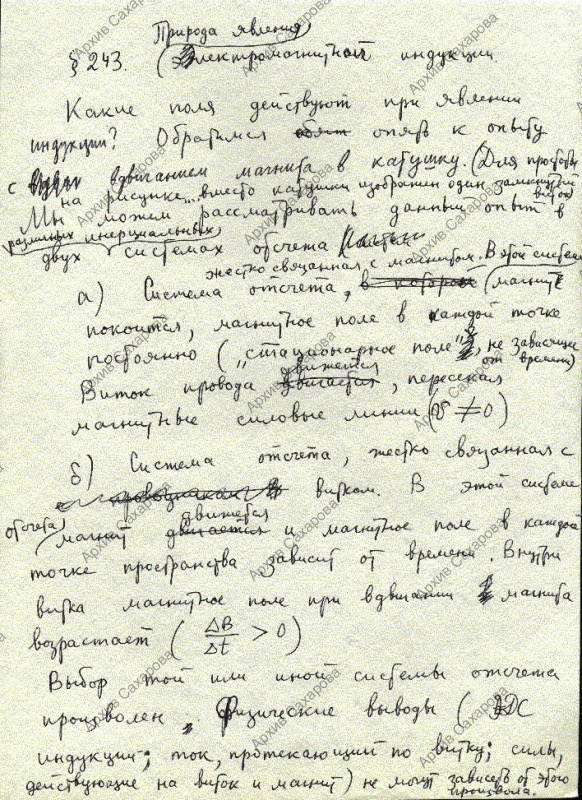 Природа явления
§ 243. электромагнитной индукции
Какие поля действуют при явлении
индукции? Обратимся опять к опыту
с вдвиганием магнита в катушку. (Для простоты
на рисунке... вместо катушки изображен один замкнутый виток)
Мы можем рассматривать данный опыт в
различных инерциальных
двух системах отсчета
жестко связанная с магнитом. В этой системе
а) Система отсчета, в которой магнит
покоится, магнитное поле в каждой точке
постоянно ("стационарное поле", не зависящее
от времени)
движется
Виток провода двигается, пересекая
магнитные силовые линии (v ≠ 0)
б) Система отсчета, жестко связанная с
проводником витком. В этой системе
отсчета движется
магнит двигается и магнитное поле в каждой
точке пространства зависит от времени. Внутри
витка магнитное поле при вдвигании магнита
возрастает (ΔB/Δt > 0)
Выбор той или иной системы отсчета
произволен. Физические выводы (ЭДС
индукции; ток, протекающий по витку; силы,
действующие на виток и магнит) не могут зависеть от этого
произвола.
Архив Сахарова